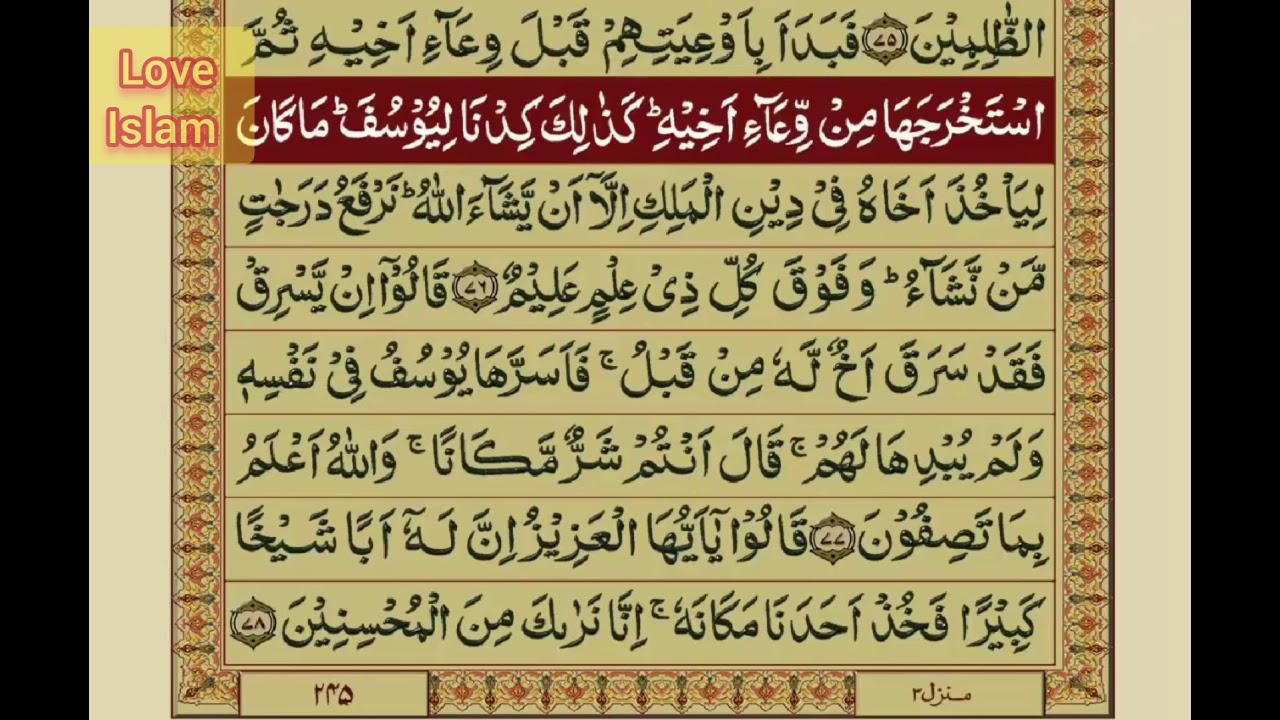 Love
Islam
الظّٰلِمِيْنَ ﴿۷۵﴾ فَبَدَاَ بِاَوْعِيَتِهِمْ قَبْلَ وِعَآءِ اَخِيْهِ ثُمَّ
اسْتَخْرَجَهَا مِنْ وِّعَآءِ اَخِيْهِ ؕ كَذٰلِكَ كِدْنَا لِيُوْسُفَ ؕ مَا كَانَ
لِيَاْخُذَ اَخَاهُ فِيْ دِيْنِ الْمَلِكِ اِلَّاۤ اَنْ يَّشَآءَ اللّٰهُ ؕ نَرْفَعُ دَرَجٰتٍ
مَّنْ نَّشَآءُ ؕ وَفَوْقَ كُلِّ ذِيْ عِلْمٍ عَلِيْمٌ ﴿۷۶﴾ قَالُوْۤا اِنْ يَّسْرِقْ
فَقَدْ سَرَقَ اَخٌ لَّهٗ مِنْ قَبْلُ ۚ فَاَسَرَّهَا يُوْسُفُ فِيْ نَفْسِهٖ
وَلَمْ يُبْدِهَا لَهُمْ ۚ قَالَ اَنْتُمْ شَرٌّ مَّكَانًا ۚ وَاللّٰهُ اَعْلَمُ
بِمَا تَصِفُوْنَ ﴿۷۷﴾ قَالُوْا يٰۤاَيُّهَا الْعَزِيْزُ اِنَّ لَهٗۤ اَبًا شَيْخًا
كَبِيْرًا فَخُذْ اَحَدَنَا مَكَانَهٗ ۚ اِنَّا نَرٰىكَ مِنَ الْمُحْسِنِيْنَ ﴿۷۸﴾
منزل۳
۲۴۵